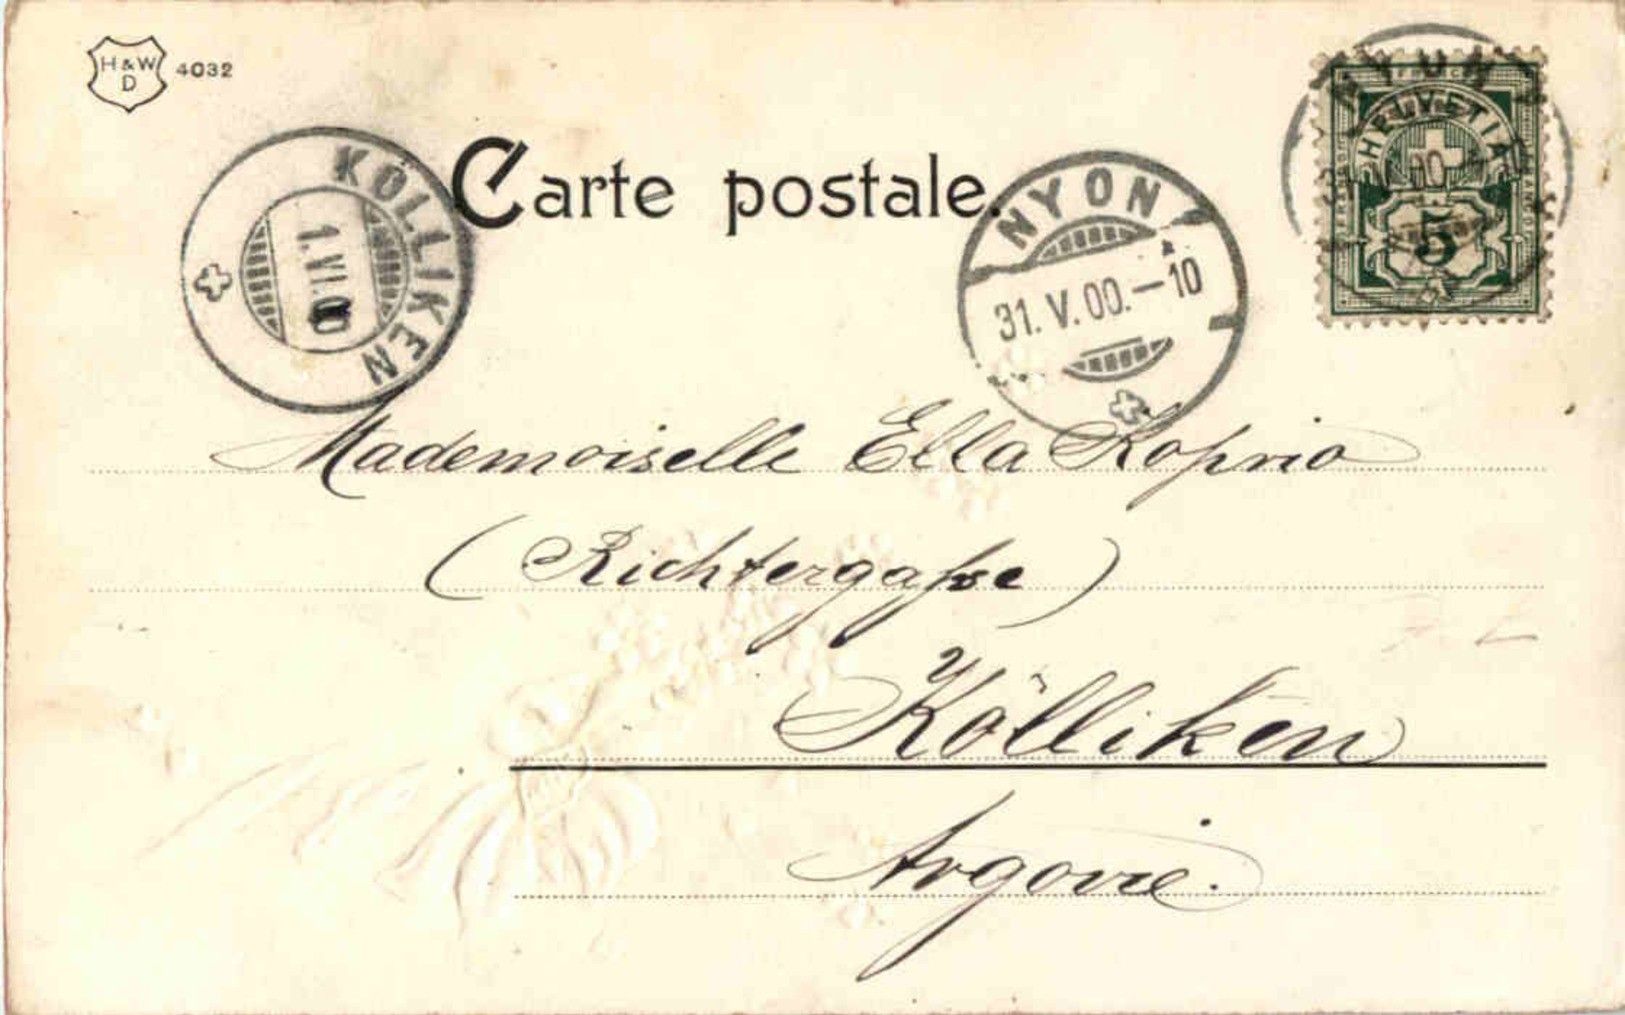 H & W
D
4032
Carte postale.
KÖLLIKEN
1.VI.00
NYON
31.V.00.–10
NYON
HELVETIA
5
Mademoiselle Ella Koprio
(Richtergasse)
Kölliken
Argovie.